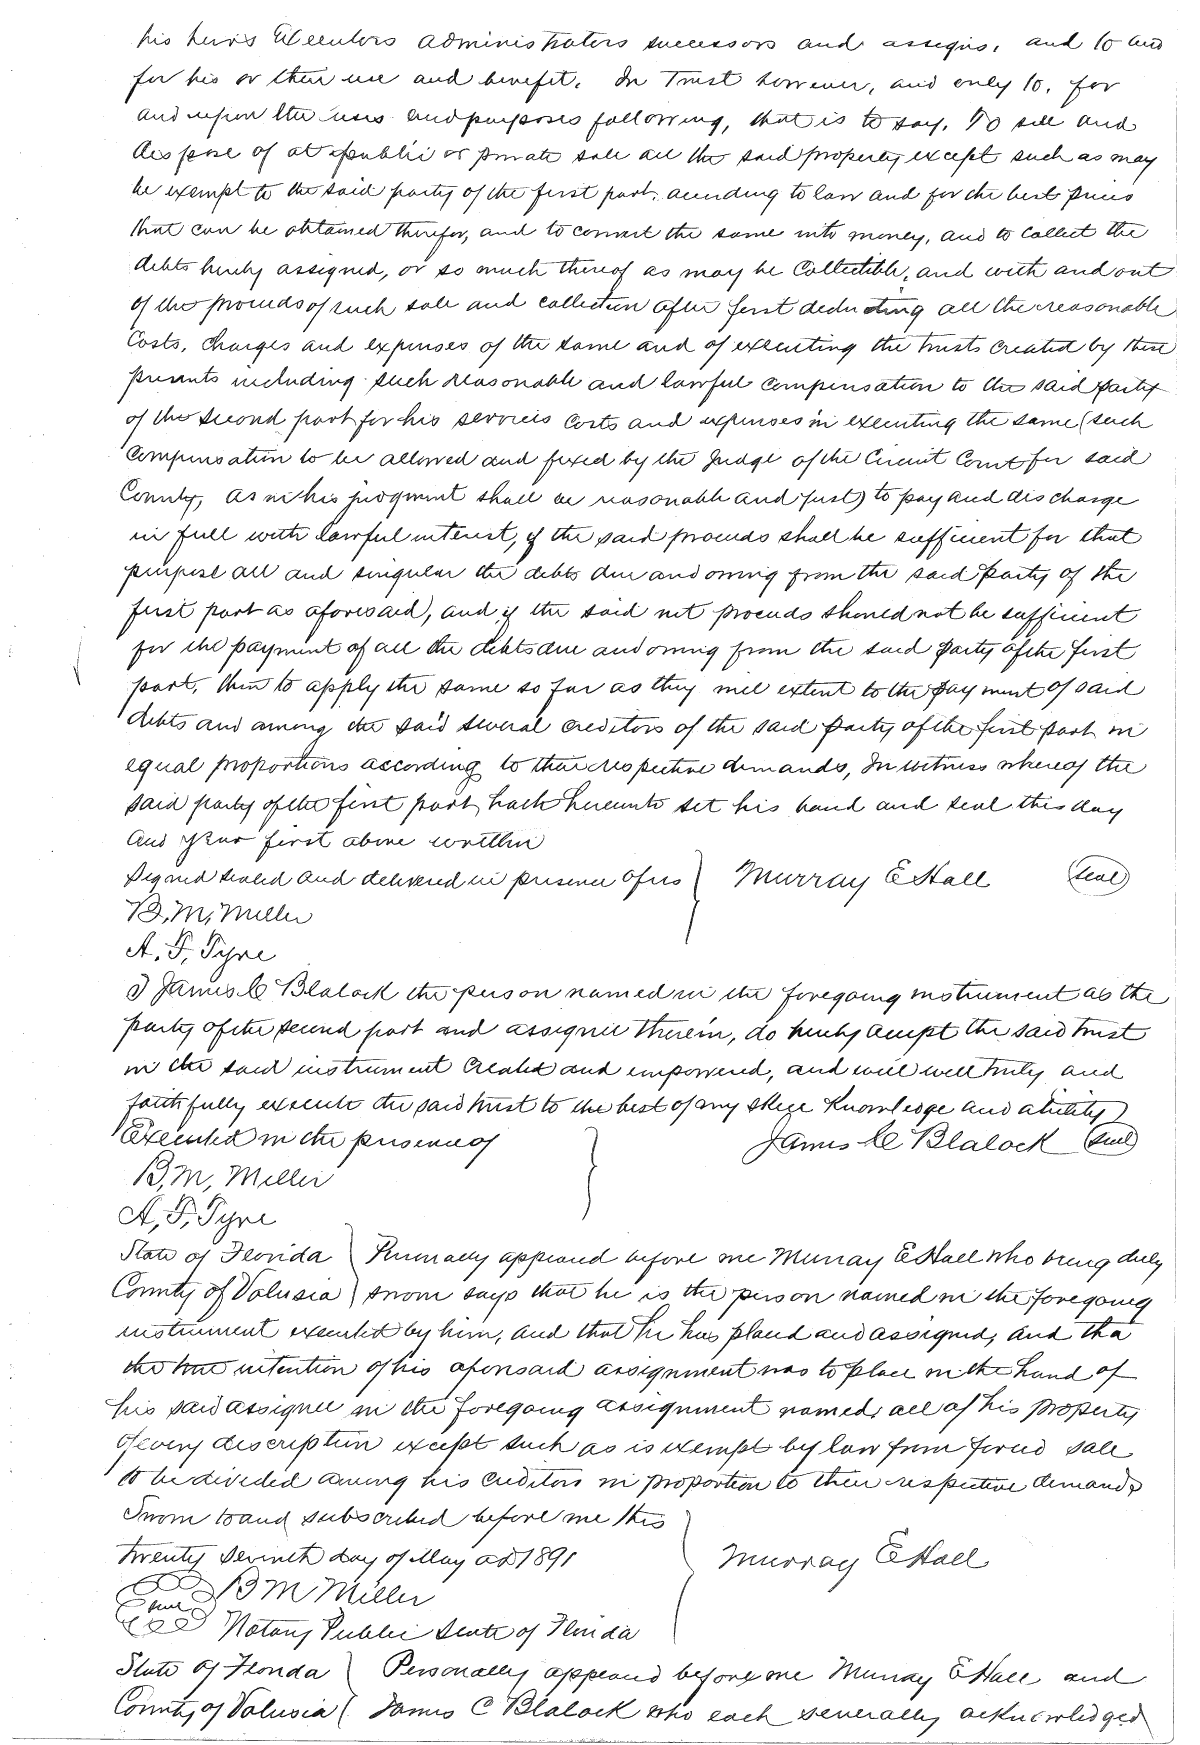 his heirs Executors administrators successors and assigns, and to and
for his or their use and benefit. In Trust however, and only to, for
and upon the uses and purposes following, that is to say. To sell and
dispose of at public or private sale all the said property except such as may
be exempt to the said party of the first part, according to law and for the best prices
that can be obtained therefor, and to convert the same into money, and to collect the
debts hereby assigned, or so much thereof as may be Collectible, and with and out
of the proceeds of such sale and collection after first deducting all the reasonable
Costs, charges and expenses of the same and of executing the trusts created by these
presents including such reasonable and lawful compensation to the said party
of the second part for his services Costs and expenses in executing the same (such
Compensation to be allowed and fixed by the Judge of the Circuit Court for said
County, as in his judgment shall be reasonable and just) to pay and discharge
in full with lawful interest, if the said proceeds shall be sufficient for that
purpose all and singular the debts due and owing from the said Party of the
first part as aforesaid, and if the said net proceeds should not be sufficient
for the payment of all the debts due and owing from the said Party of the first
part, then to apply the same so far as they will extent to the payment of said
debts and among the said several creditors of the said Party of the first part in
equal proportions according to their respective demands, In witness whereof the
said party of the first part hath hereunto set his hand and seal this day
and year first above written
Signed sealed and delivered in presence of us } Murray E Hall (seal)
B. M. Miller
A. F. Tyre
I James C Blalock the person named in the foregoing instrument as the
party of the second part and assignee therein, do hereby accept the said trust
in the said instrument created and empowered, and will well truly and
faithfully execute the said trust to the best of my skill Knowledge and ability
Executed in the presence of } James C Blalock (seal)
B. M. Miller
A. F. Tyre
State of Florida } Personally appeared before me Murray E Hall who being duly
County of Volusia } sworn says that he is the person named in the foregoing
instrument executed by him, and that he has placed and assigned, and tha
the true intention of his aforesaid assignment was to place in the hand of
his said assignee in the foregoing assignment named, all of his property
of every discription except such as is exempt by law from forced sale
to be divided among his creditors in proportion to their respective demands
Sworn to and subscribed before me this
twenty seventh day of May AD 1891 } Murray E Hall
seal B M Miller
Notary Public State of Florida
State of Florida } Personally appeared before me Murray E Hall and
County of Volusia } James C Blalock who each severally acknowledged